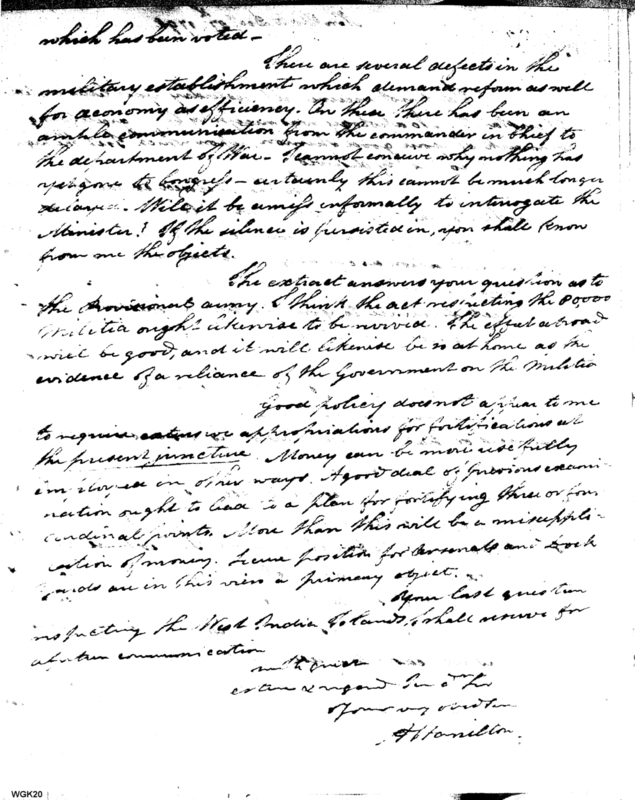 which has been voted –
There are several defects in the
military establishment which demand reform as well
for œconomy as efficiency. On these there has been an
ample communication from the commander in Chief to
the department of War – I cannot conceive why nothing has
yet gone to Congress – certainly this cannot be much longer
delayed. Will it be amiss informally to interrogate the
Minister? If the silence is persisted in, you shall know
from me the objects.
The extract answers your question as to
the Provisional army. I think the act respecting the 80000
Militia ought likewise to be revived. The effect abroad
will be good, and it will likewise be so at home as the
evidence of a reliance of the Government on the Militia
Good policy does not appear to me
to require extensive appropriations for fortifications at
the present juncture. Money can be more usefully
employed in other ways. A good deal of previous exami-
nation ought to lead to a plan for fortifying three or four
cardinal points. More than this will be a misappli-
cation of money. Secure position for Arsenals and Dock
Yards are in this view a primary object.
Your last question
respecting the West India Islands, I shall reserve for
a future communication
with great
esteem & regard
Your
A Hamilton.
WGK20